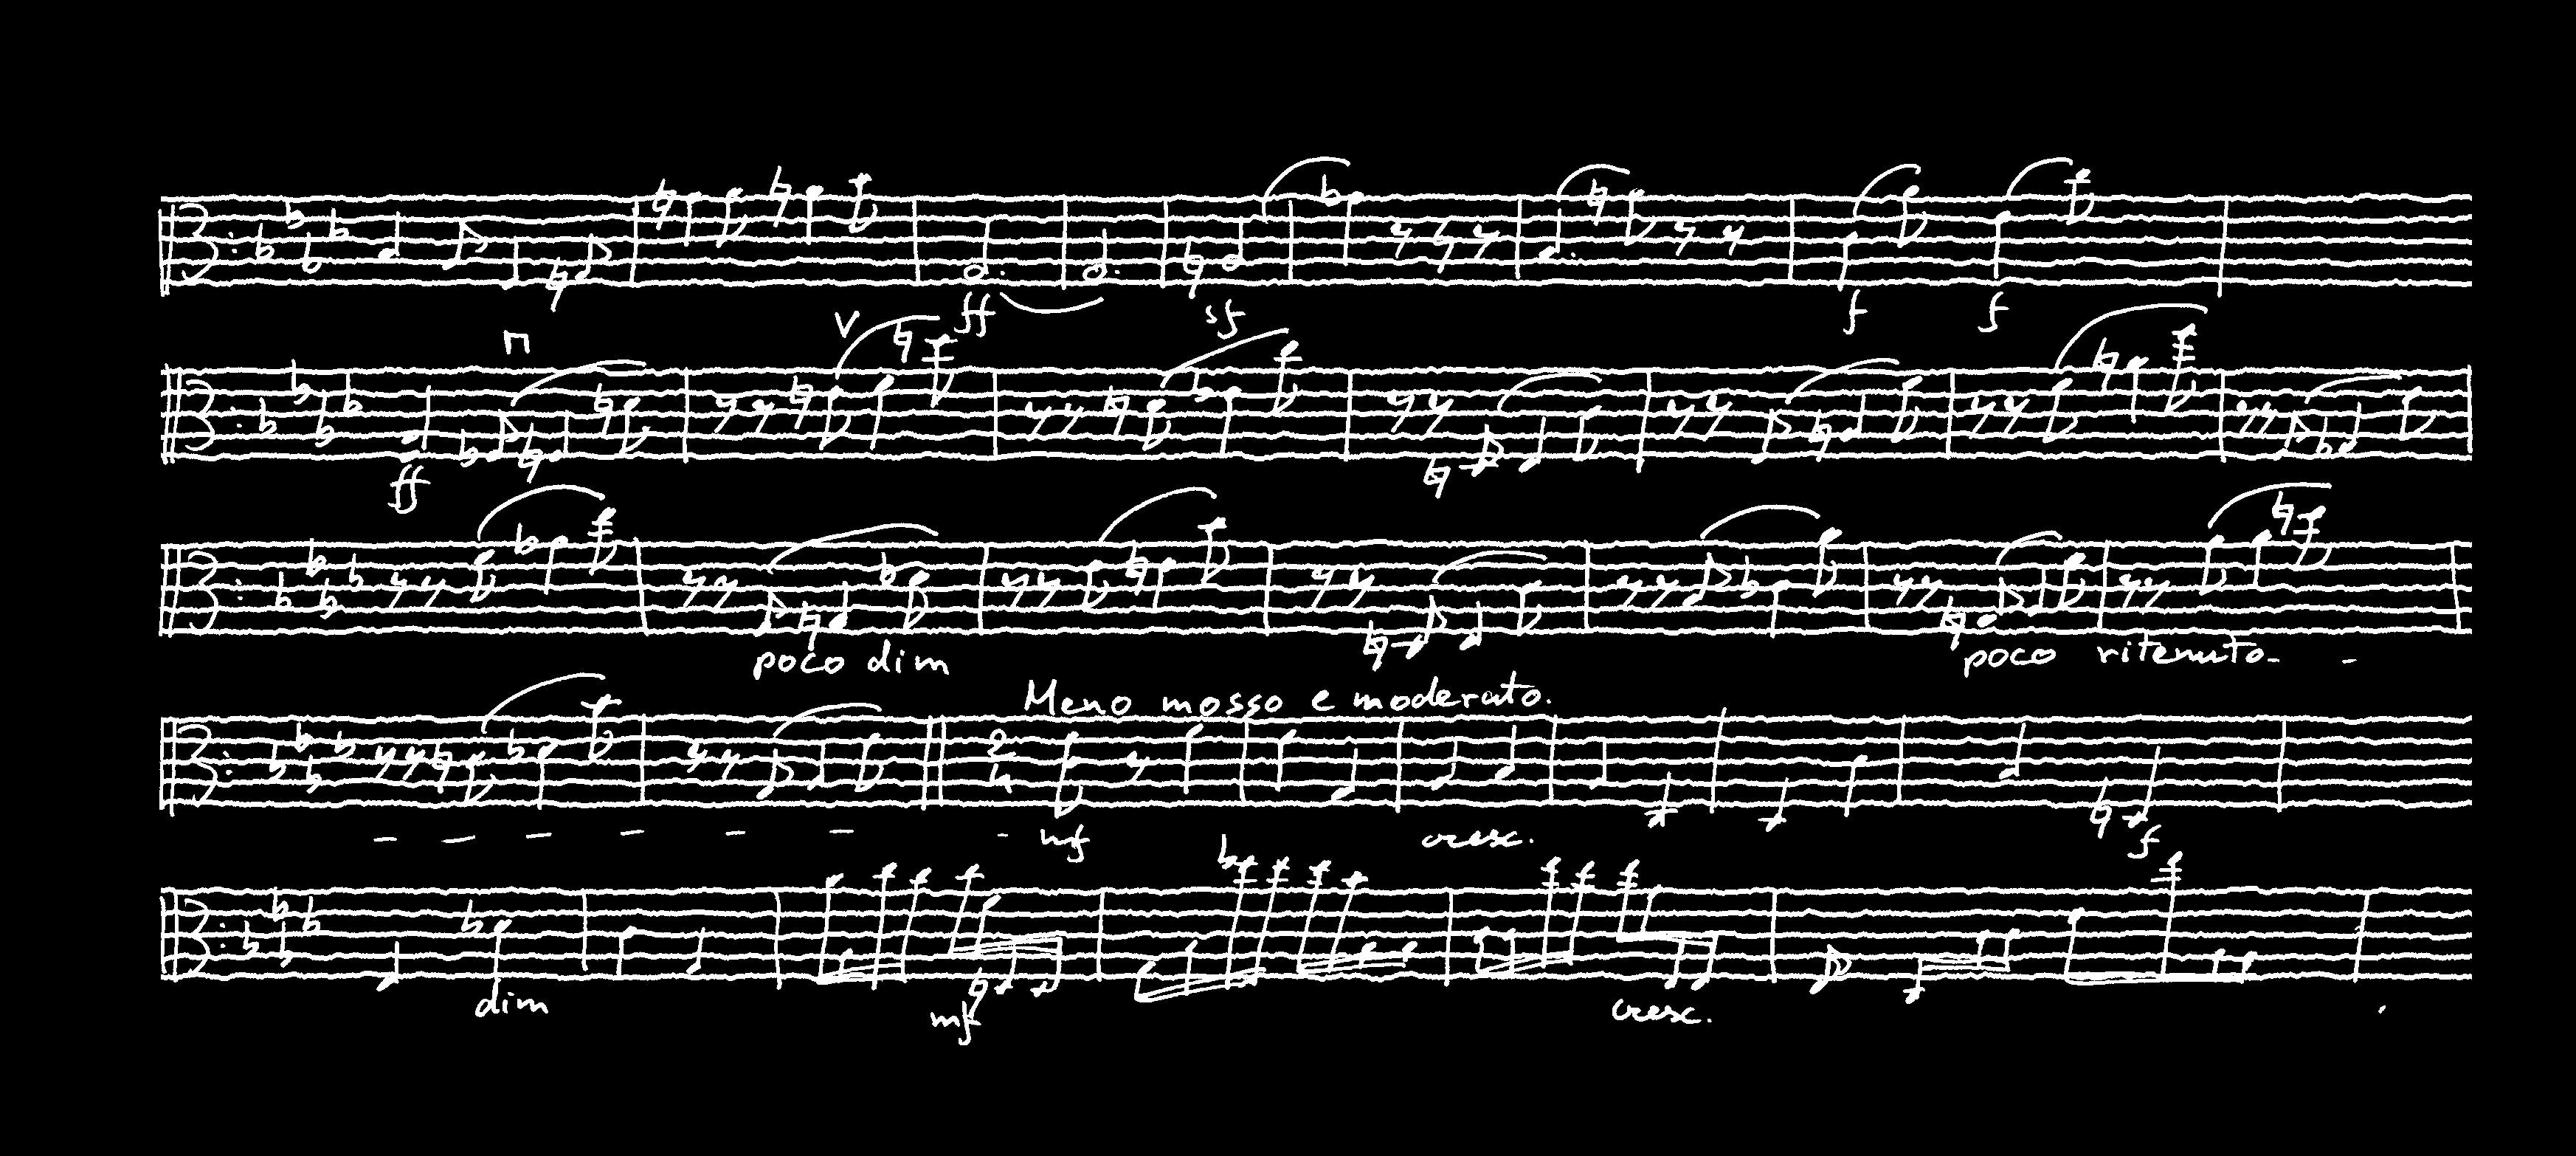 ff sf f f
V
ff
poco dim poco ritenuto - -
Meno mosso e moderato.
- - - - - - - mf cresc. f
dim mf cresc.